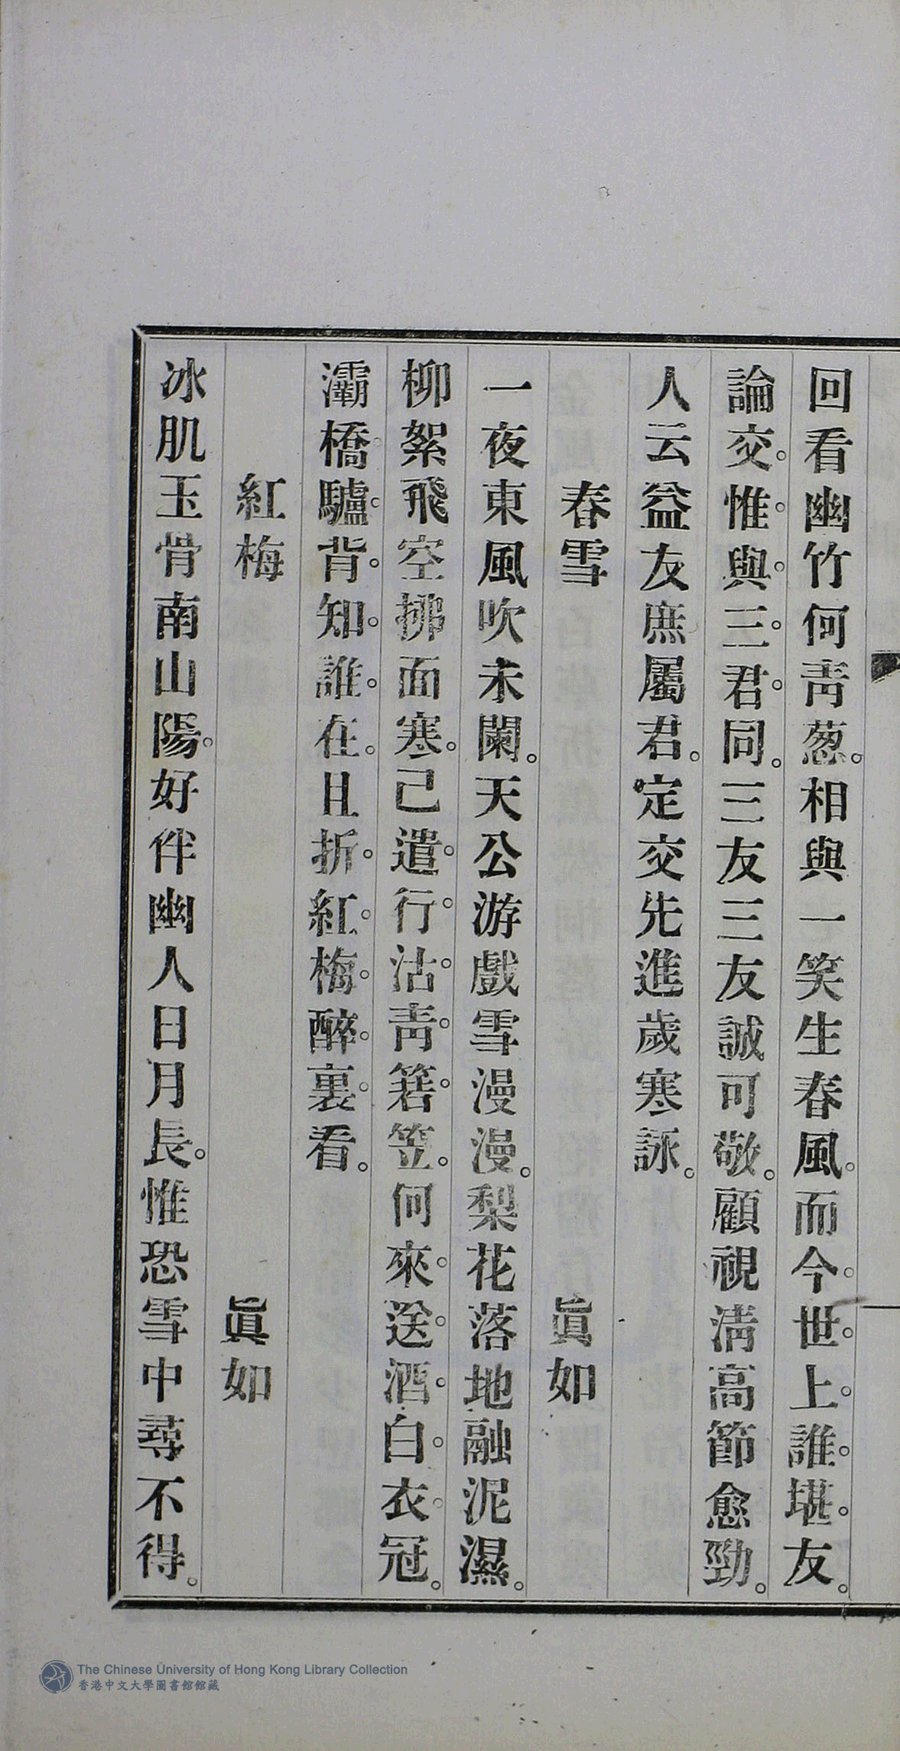 回看幽竹何靑葱。相與一笑生春風。而今世上誰堪友。
論交惟與三君同。三友三友誠可敬。顧視淸高節愈勁。
人云益友庶屬君。定交先進歲寒詠。
春雪 眞如
一夜東風吹未闌。天公游戲雪漫漫。梨花落地融泥濕。
柳絮飛空拂面寒。已遣行沽靑篛笠。何來送酒白衣冠。
灞橋驢背知誰在。且折紅梅醉裏看。
紅梅 眞如
冰肌玉骨南山陽。好伴幽人日月長。惟恐雪中尋不得。
The Chinese University of Hong Kong Library Collection
香港中文大學圖書館館藏